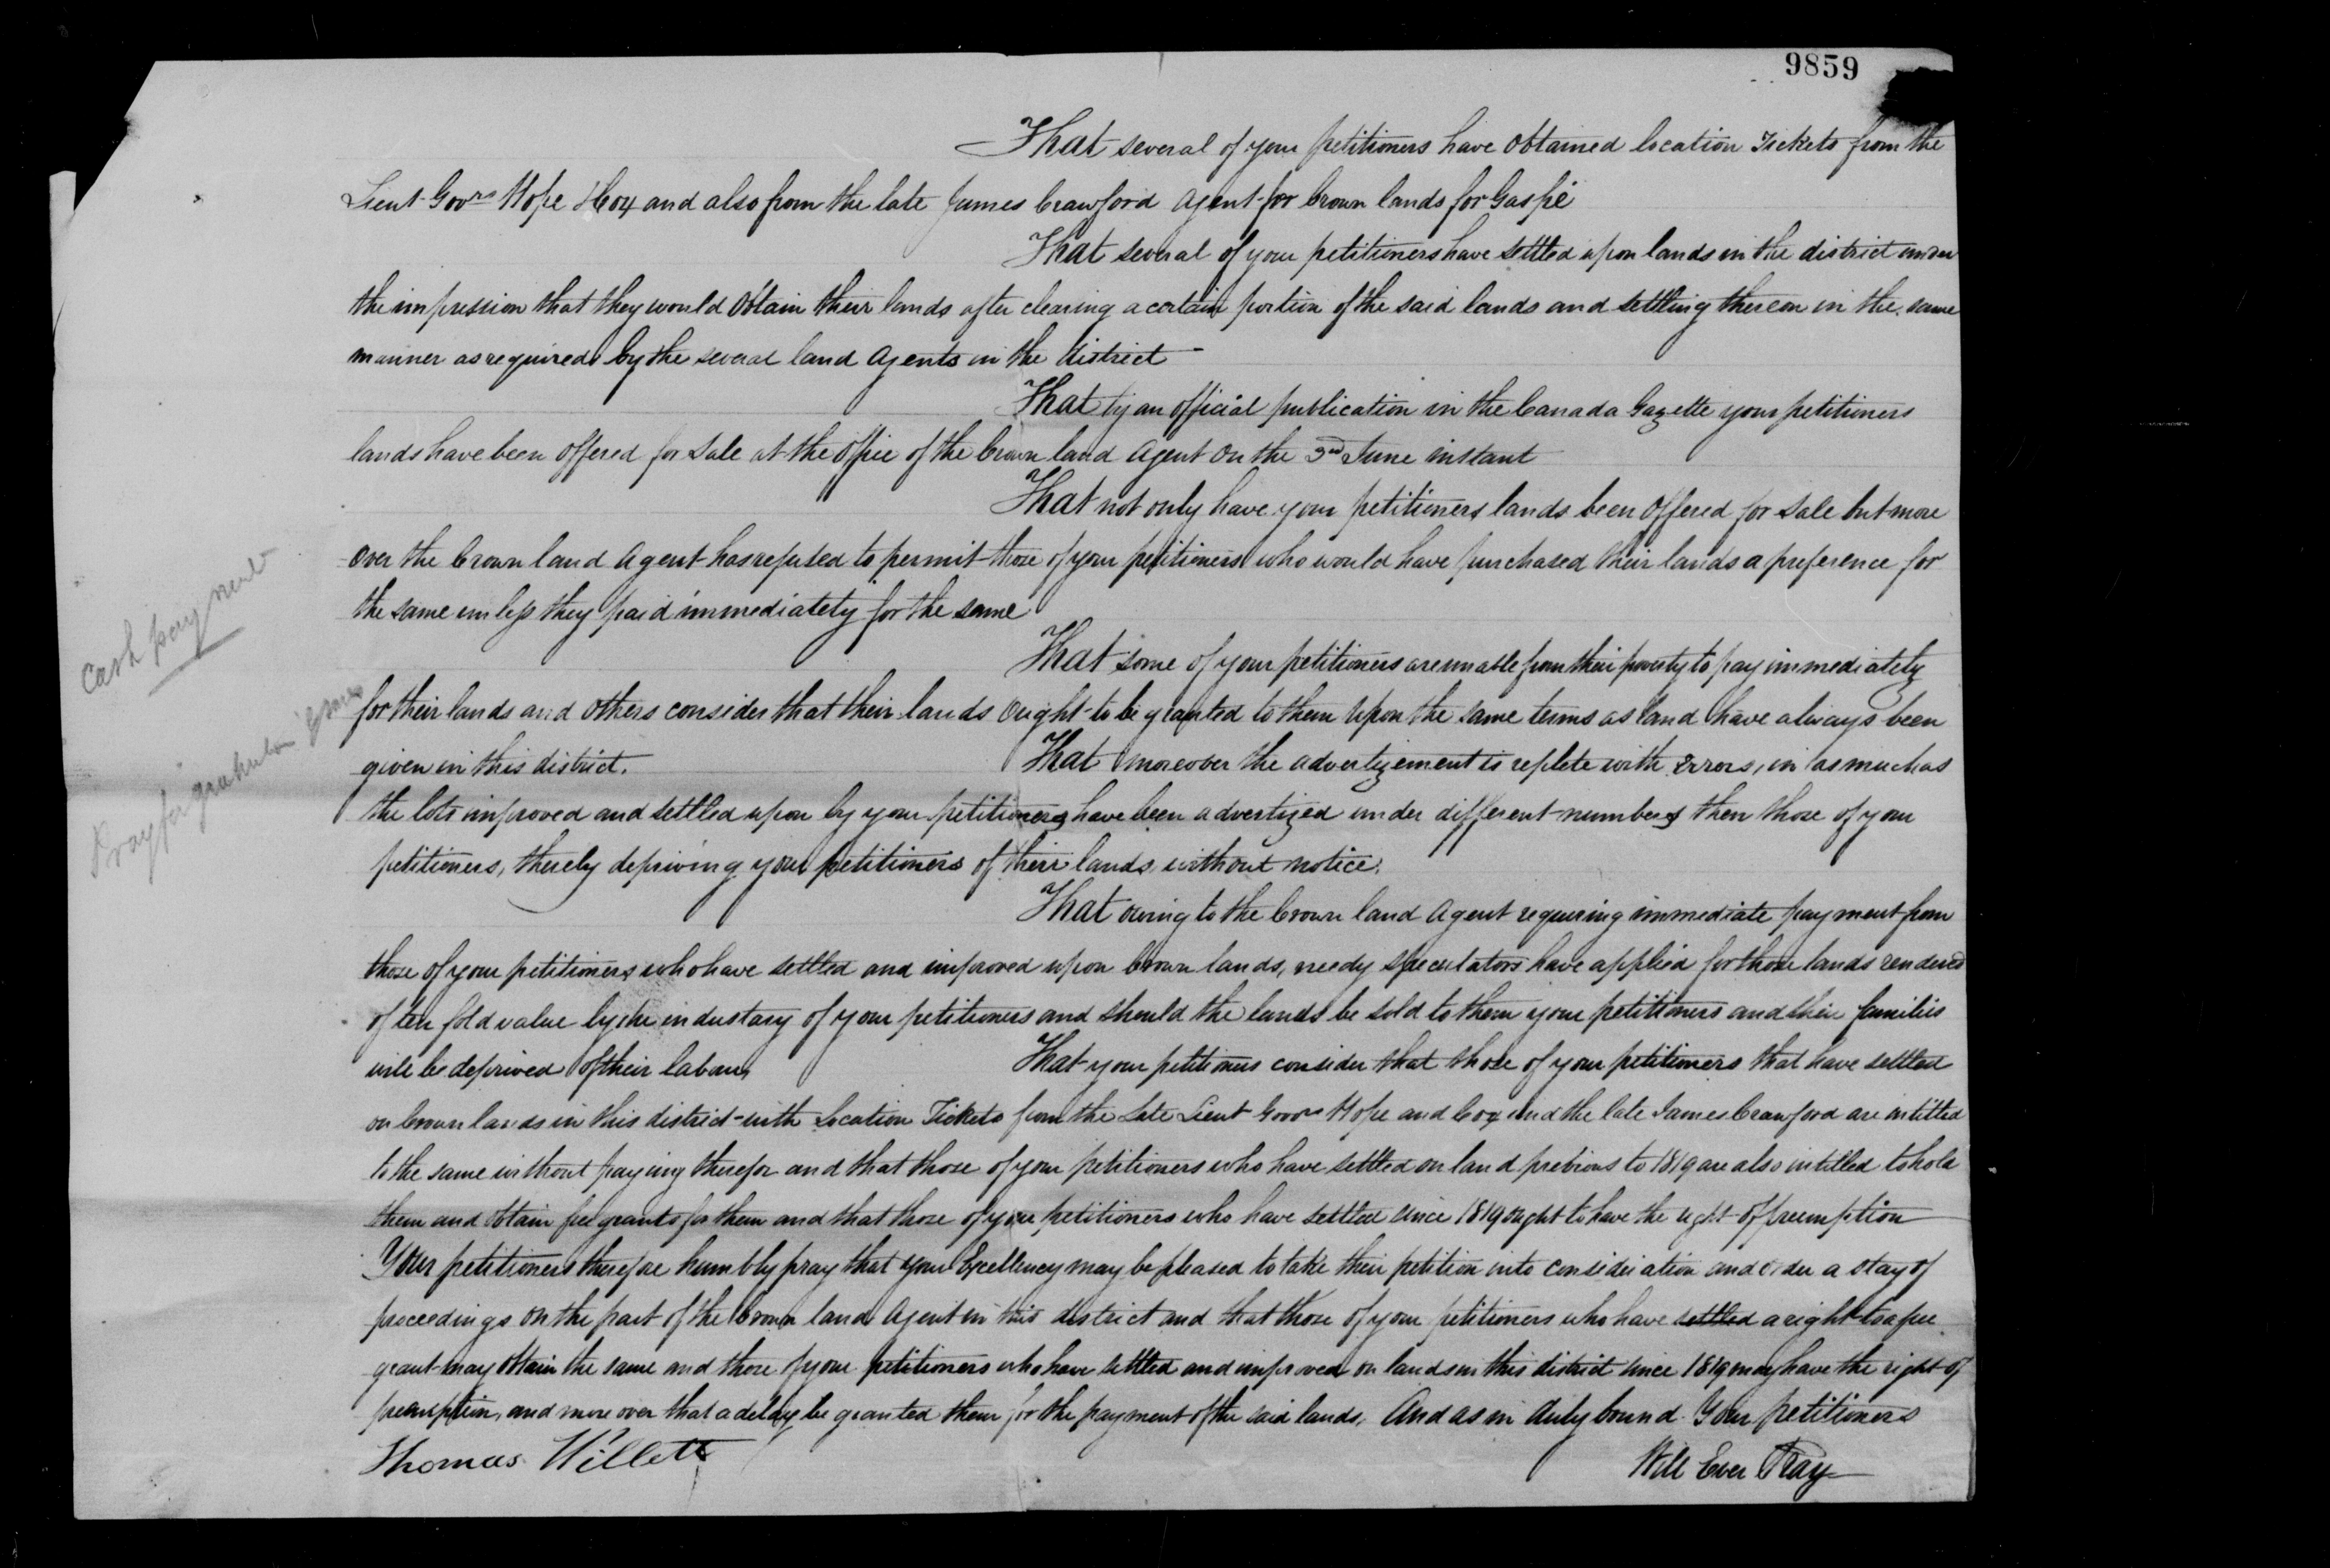 9859
That several of your petitioners have obtained location Tickets from the
Lieut Govrs Hope & Cox and also from the late James Crawford Agent for Crown lands for Gaspé
That several of your petitioners have settled upon lands in the district under
the impression that they would obtain their lands after clearing a certain portion of the said lands and settling thereon in the same
manner as required by the several land Agents in the district
That by an official publication in the Canada Gazette your petitioners
lands have been offered for sale at the office of the Crown land Agent on the 3rd June instant
That not only have your petitioners lands been offered for sale but more
over the Crown land Agent has refused to permit those of your petitioners who would have purchased their lands a preference for
the same unless they paid immediately for the same
That some of your petitioners are unable from their poverty to pay immediately
for their lands and others consider that their lands ought to be granted to them upon the same terms as land have always been
given in this district. That moreover the advertizement is replete with Errors, in as much as
the lots improved and settled upon by your petitioners have been advertized under different numbers then those of your
petitioners, thereby depriving your petitioners of their lands without notice.
That owing to the Crown land Agent requiring immediate payment from
those of your petitioners who have settled and improved upon Crown lands, needy speculators have applied for those lands rendered
of ten fold value by the industary of your petitioners and should the lands be sold to them your petitioners and their families
will be deprived of their labour, That your petitioners consider that those of your petitioners that have settled
on Crown lands in this district with Location Tickets from the Late Lieut Govrs Hope and Cox and the late James Crawford are intitled
to the same without paying therefor and that those of your petitioners who have settled on land previous to 1819 are also intitled to hold
them and obtain free grants for them and that those of your petitioners who have settled since 1819 ought to have the right of preemption
Your petitioners therefore humbly pray that your Excellency may be pleased to take their petition into consideration and order a stay of
proceedings on the part of the Crown land Agent in this district and that those of your petitioners who have settled a right to a free
grant may obtain the same and those of your petitioners who have settled and improved on lands in this district since 1819 may have the right of
preemption, and more over that a delay be granted them for the payment of the said lands, And as in duty bound Your petitioners
Will Ever Pray
Thomas Willett
Cash payment
Pray for